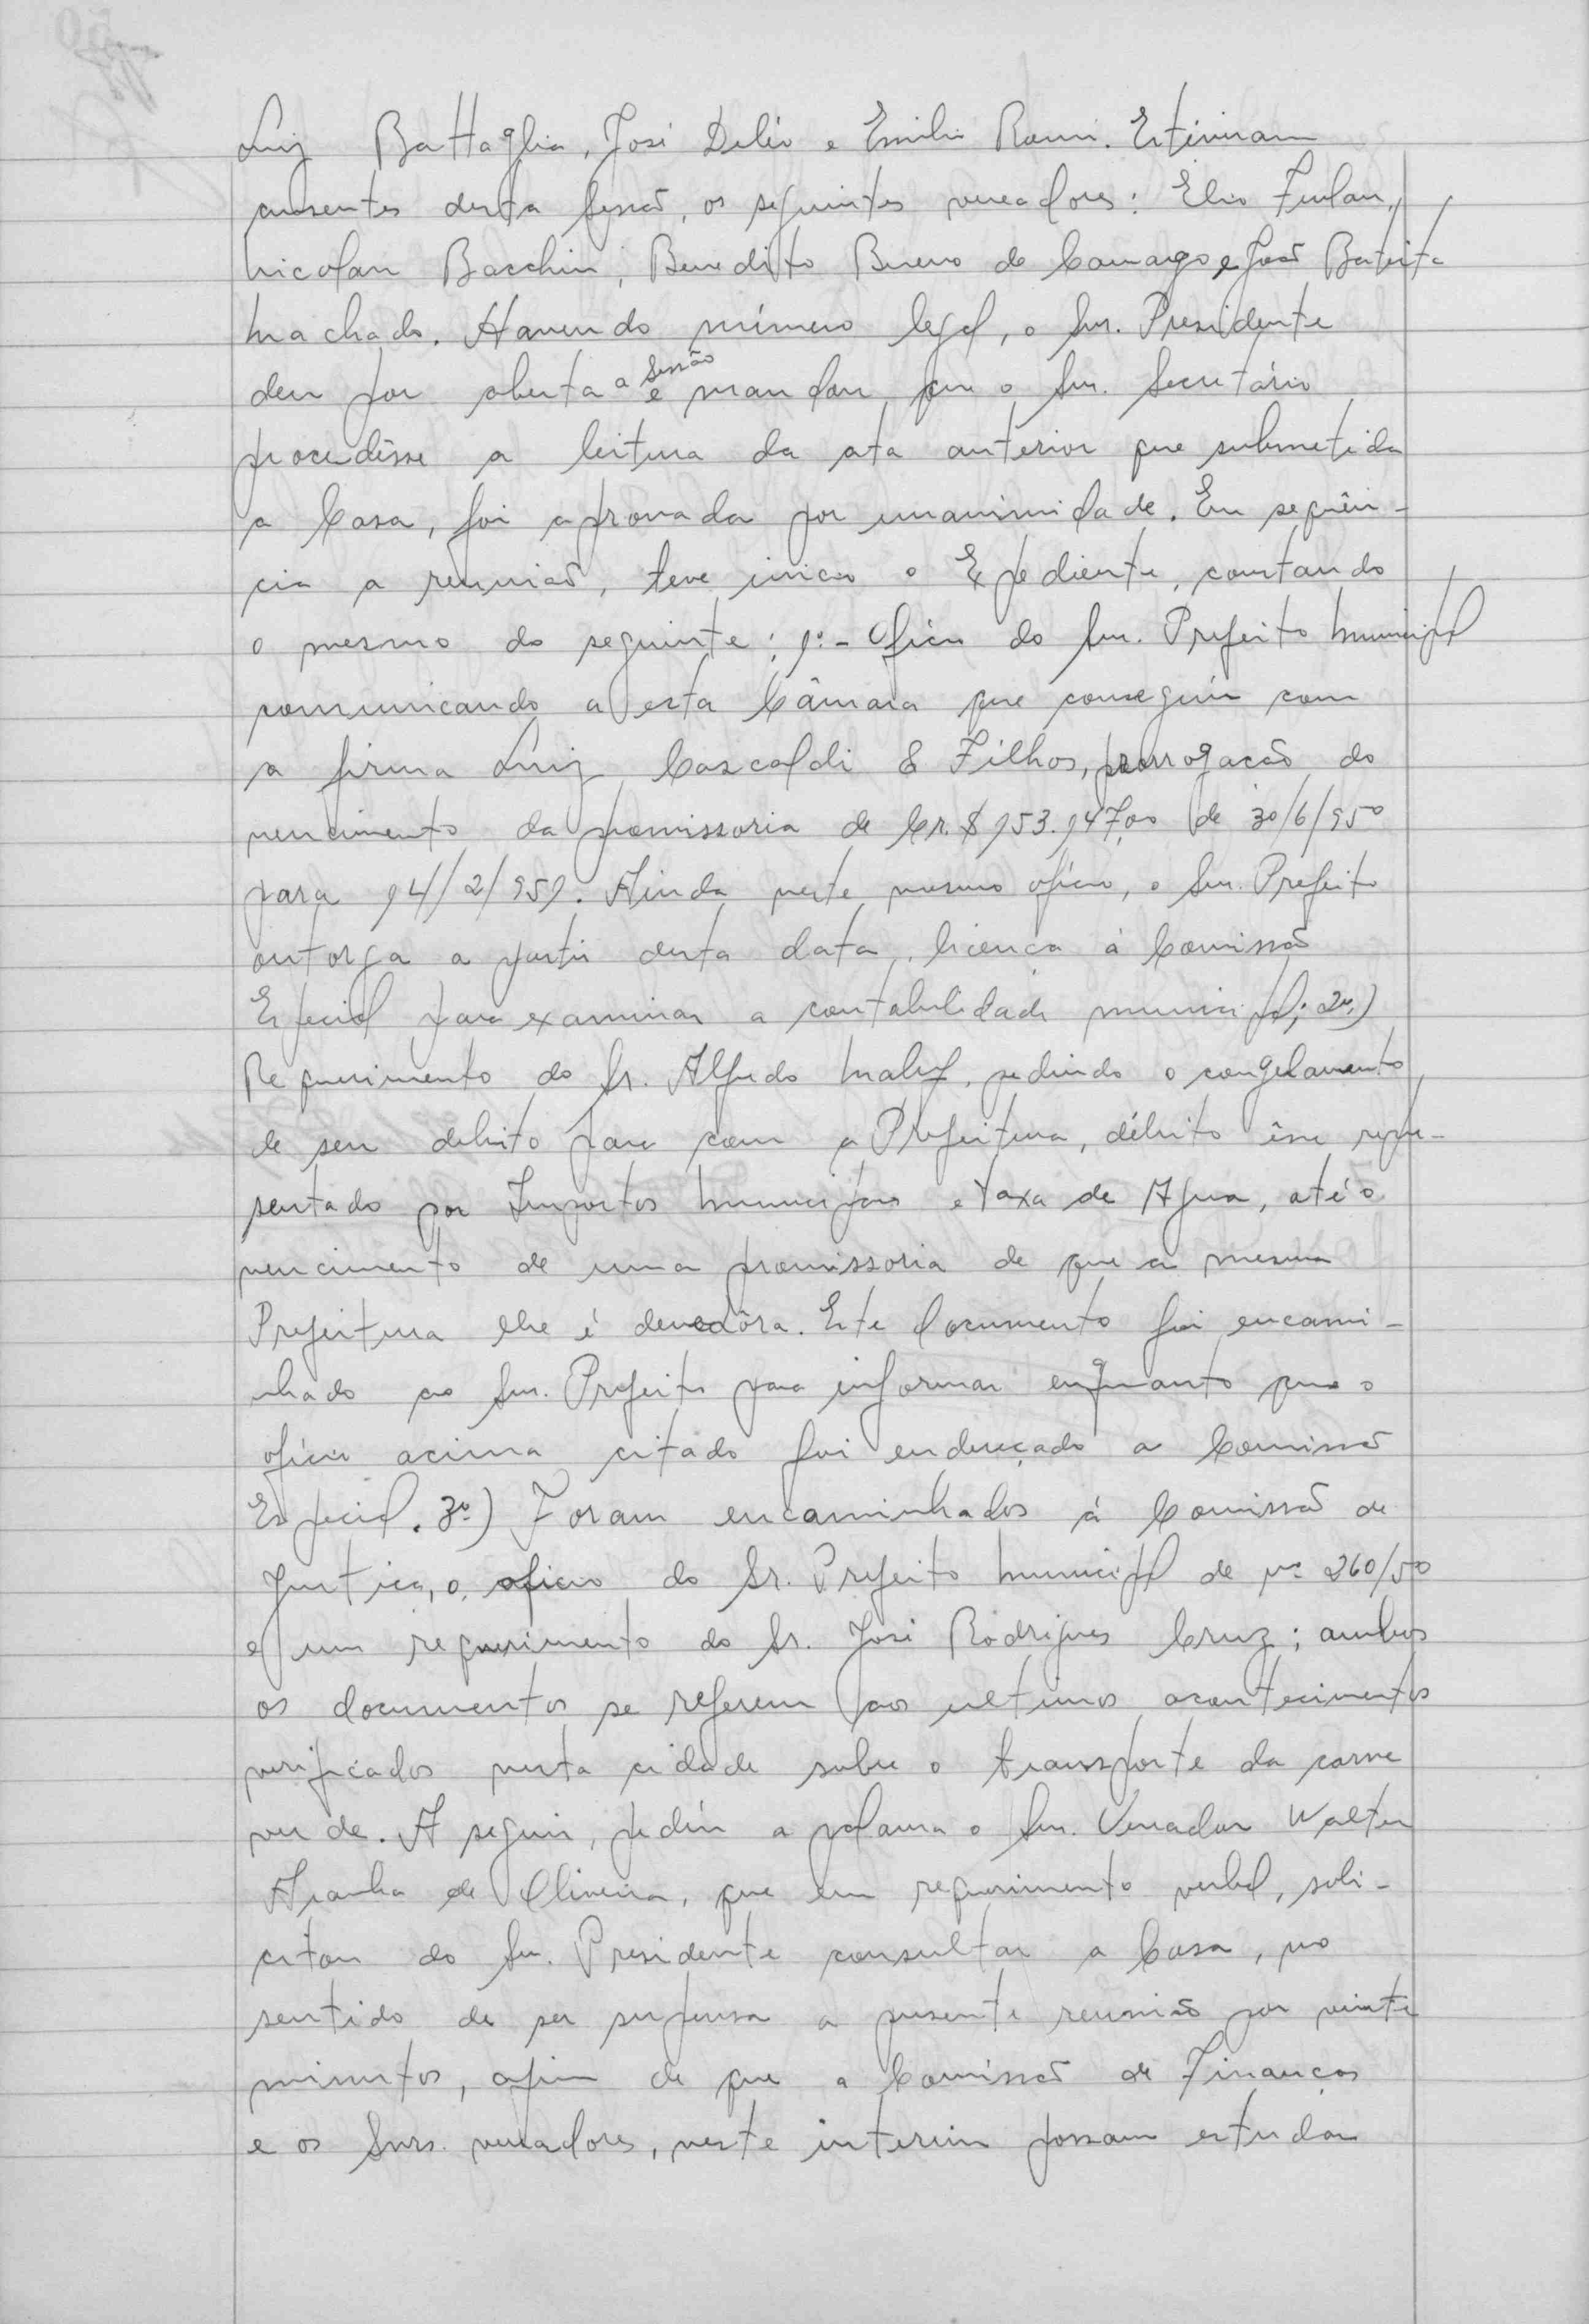 Luiz Battaglia, José Deléo e Emilio Romi. Estiveram
ausentes desta Sessão, os seguintes vereadores: Elio Furlan,
Nicolau Bacchin, Benedito Bueno de Camargo e João Batista
Machado. Havendo número legal, o Snr. Presidente
deu por aberta a Sessão e mandou que o Snr. Secretário
procedêsse a leitura da ata anterior que submetida
a Casa, foi aprovada por unanimidade. Em sequên-
cia a reunião, teve inicio o Expediente, constando
o mesmo do seguinte: 1º - Oficio do Snr. Prefeito Municipal
comunicando a esta Câmara que conseguiu com
a firma Luiz Cascaldi & Filhos, prorrogação do
vencimento da promissoria de Cr.$ 153.147,00 de 30/6/950
para 14/2/951. Ainda neste mesmo oficio, o Snr. Prefeito
outorga a partir desta data, licença á Comissão
Especial para examinar a contabilidade municipal; 2º)
Requerimento do Sr. Alfredo Maluf, pedindo o congelamento
de seu debito para com a Prefeitura, débito êsse repre-
sentado por Impostos Municipais e Taxa de Agua, até o
vencimento de uma promissoria de que a mesma
Prefeitura lhe é devedôra. Este documento foi encami-
nhado ao Snr. Prefeito para informar enquanto que o
oficio acima citado foi endereçado a Comissão
Especial. 3º) Foram encaminhados á Comissão de
Justiça, o oficio do Sr. Prefeito Municipal de nº 260/50
e um requerimento do Sr. José Rodrigues Cruz; ambos
os documentos se referem aos ultimos acontecimentos
verificados nesta cidade sobre o transporte da carne
verde. A seguir, pediu a palavra o Snr. Vereador Walter
Aranha de Oliveira, que em requerimento verbal, soli-
citou do Snr. Presidente consultar a Casa, no
sentido de ser suspensa a presente reunião por vinte
minutos, afim de que a Comissão de Finanças
e os Snrs. vereadores, neste interim possam estudar